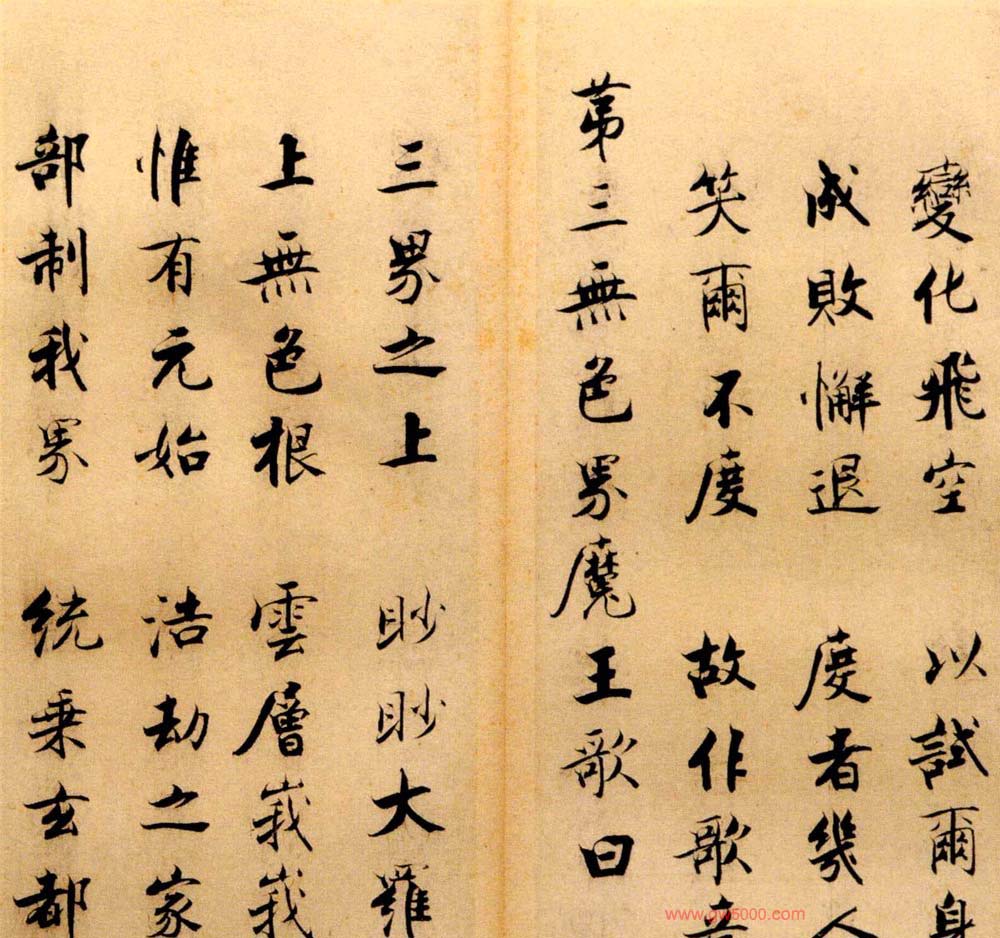 變化飛空 以試爾身
成敗懈退 度者幾人
笑爾不度 故作歌
苐三無色界魔王歌曰
三界之上 眇眇大羅
上無色根 雲層峩峩
惟有元始 浩劫之家
部制我界 統乗玄都